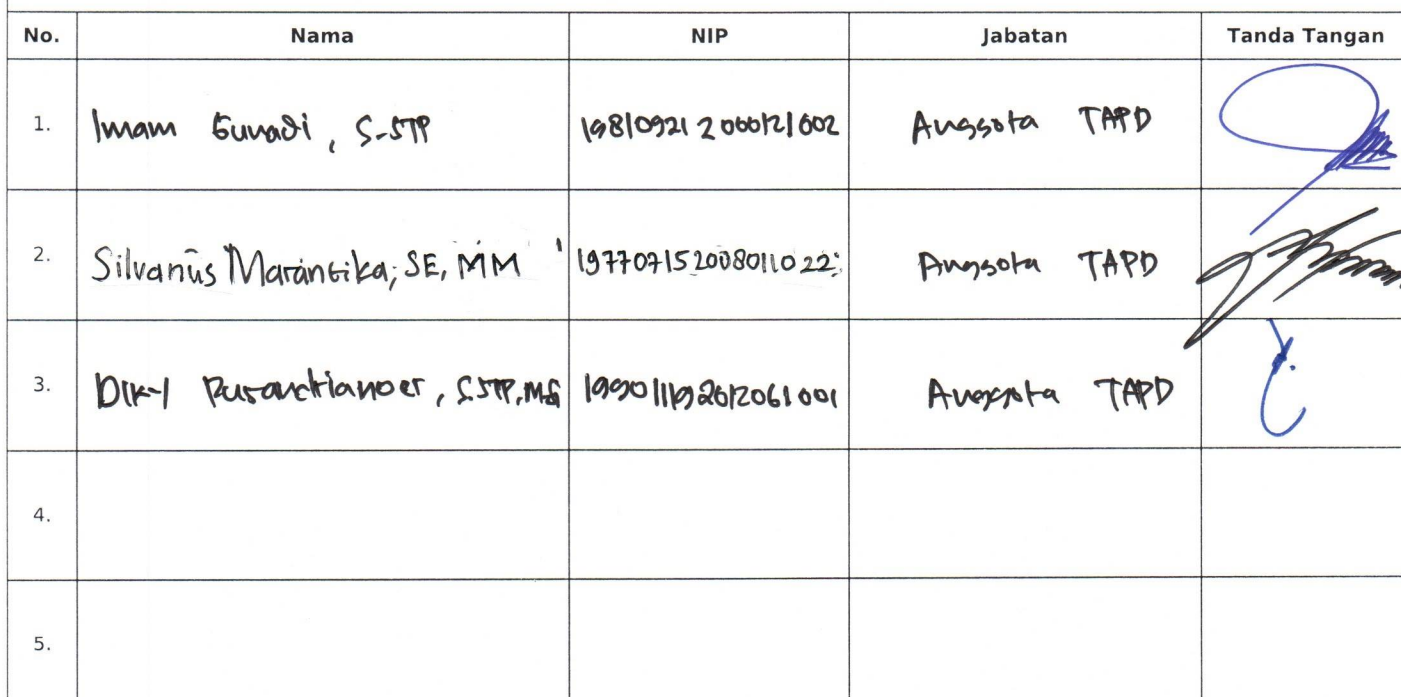 No. Nama NIP Jabatan Tanda Tangan
1. Imam Gunadi, S-STP 198109212000121002 Anggota TAPD
2. Silvanus Marantika, SE, MM 197707152008011022 Anggota TAPD
3. S.STP, 199011192012061001 Anggota TAPD
4.
5.